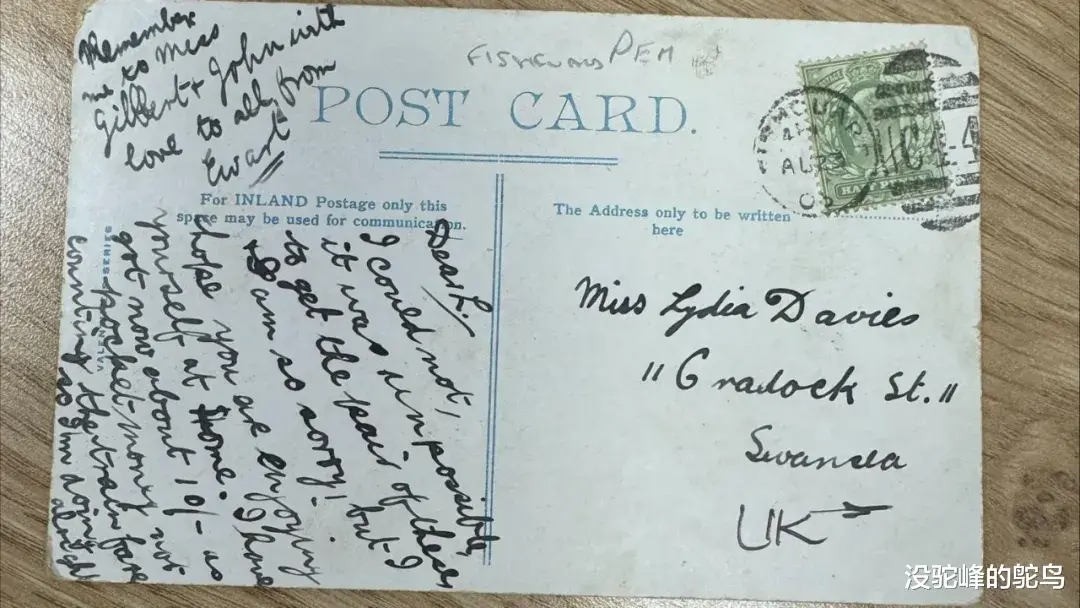 FISHGUARD PEM
POST CARD.
For INLAND Postage only this
space may be used for communication.
The Address only to be written
here
Dear L.
I could not,
it was impossible,
to get the pair of these
I am so sorry! but I
hope you are enjoying
yourself at Home. I have
got now about 10/- as
pocket-money not
counting the train fare
so I'm doing alright
Remember
me to Miss
Gilbert & John with
love to all from
Ewart
Miss Lydia Davies
"Cradock St."
Swansea
UK
SERIES
POSTAGE
AU 23
没驼峰的鸵鸟